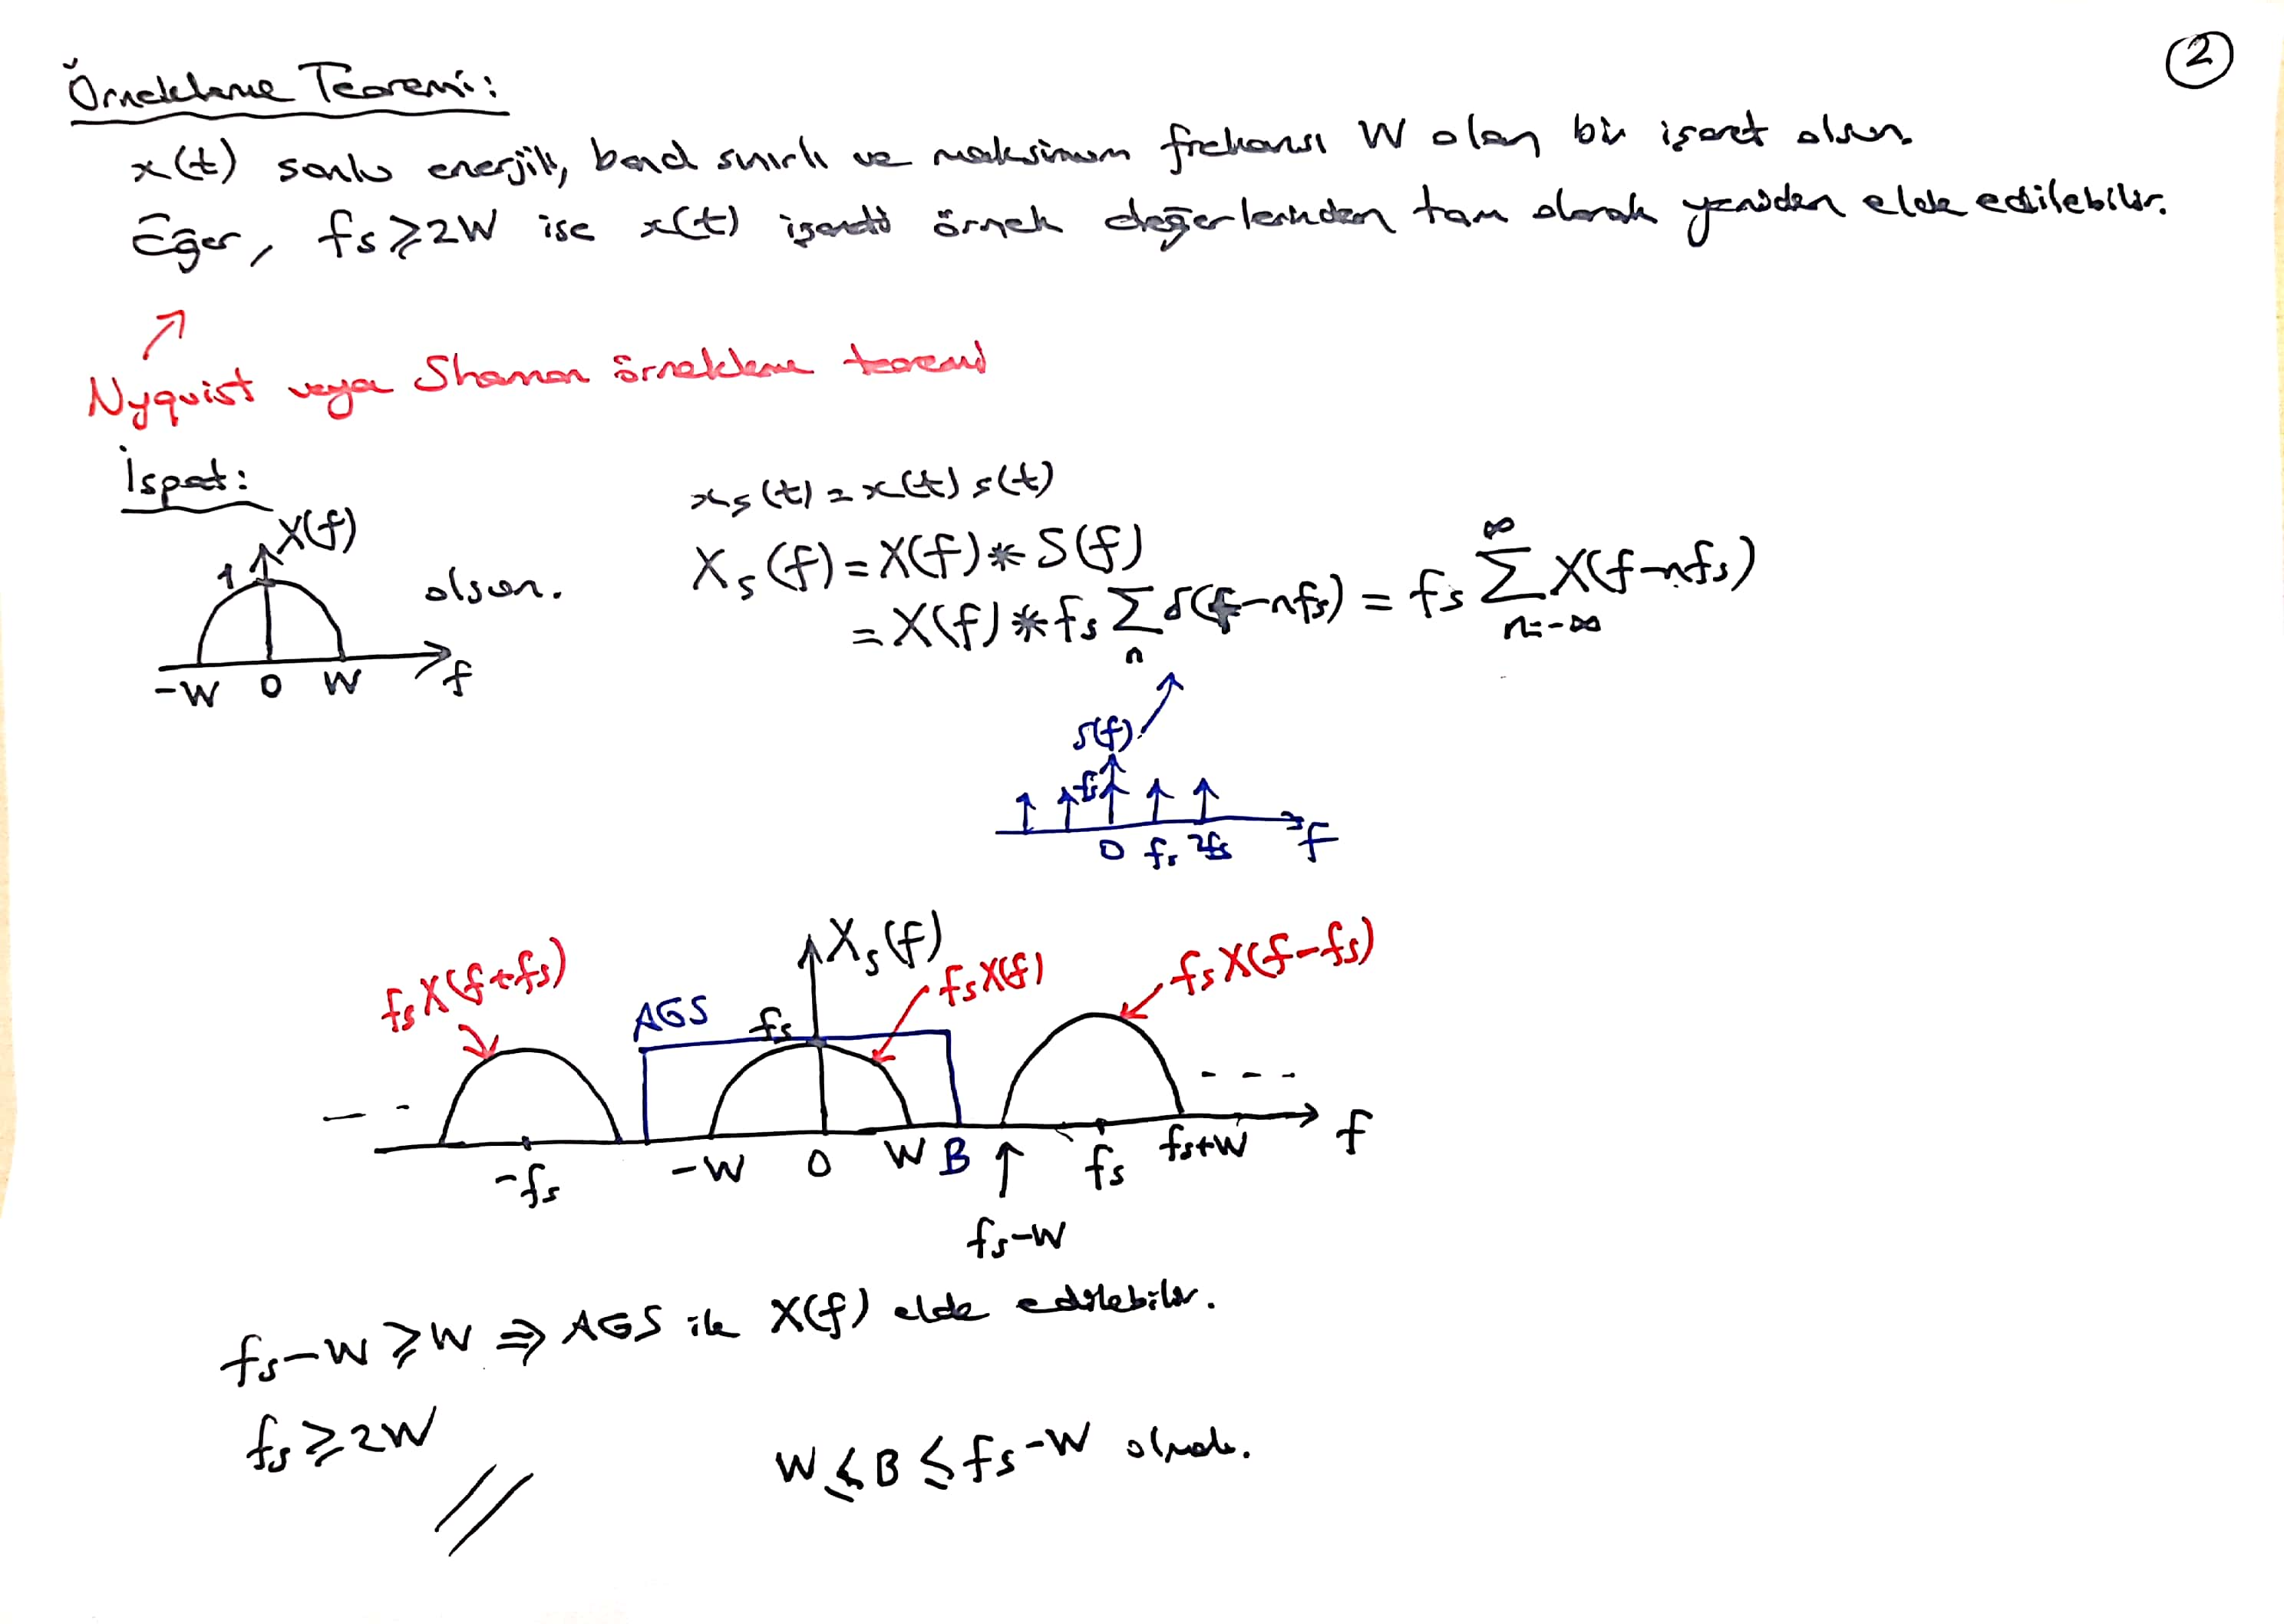 2
Örnekleme Teoremi:
x(t) sonlu enerjili, band sınırlı ve maksimum frekansı W olan bir işaret olsun.
Eğer, fs≥2W ise x(t) işareti örnek değerlerinden tam olarak yeniden elde edilebilir.
Nyquist veya Shannon örnekleme teoremi
İspat:
X(f)
1
olsun.
-W 0 W f
xs(t) = x(t) s(t)
Xs(f) = X(f) * S(f)
= X(f) * fs ∑n δ(f-nfs) = fs ∑_{n=-∞}^{∞} X(f-nfs)
S(f)
fs
0 fs 2fs f
Xs(f)
fsX(f+fs) AGS fs fsX(f) fsX(f-fs)
-fs -W 0 W B fs fs+W f
fs-W
fs-W ≥ W ⇒ AGS ile X(f) elde edilebilir.
fs ≥ 2W
W ≤ B ≤ fs-W olmalı.